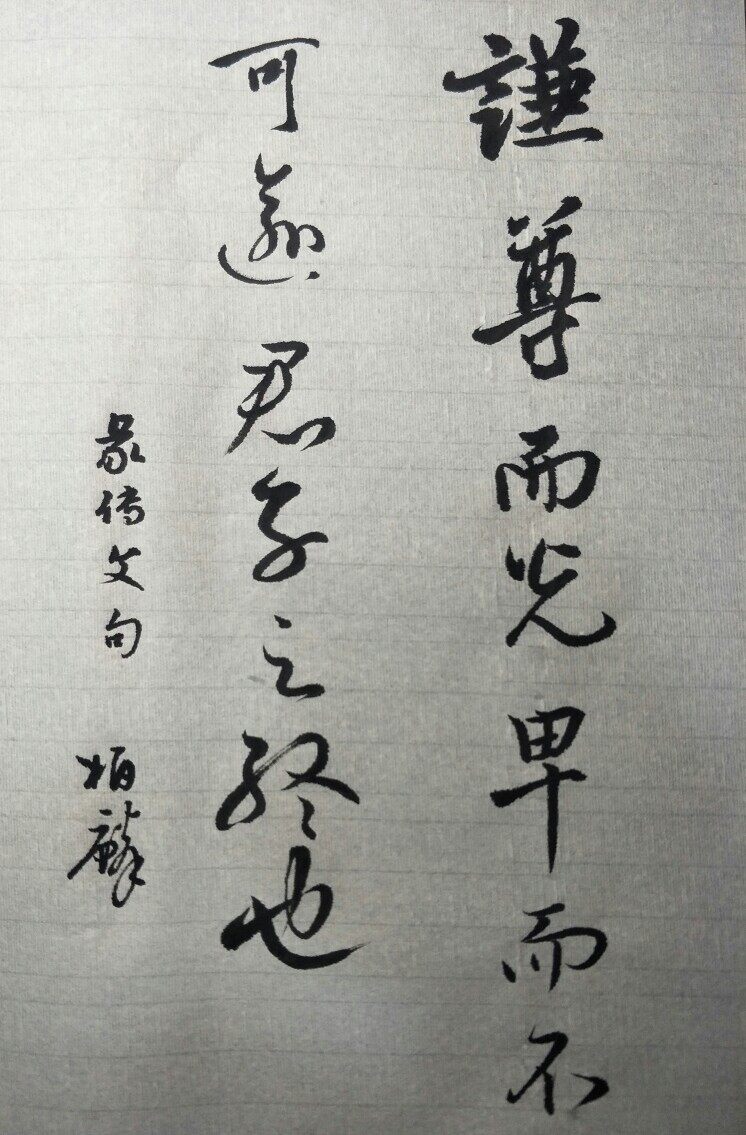 謙尊而光卑而不
可逾君子之終也
彖传文句
柏麟